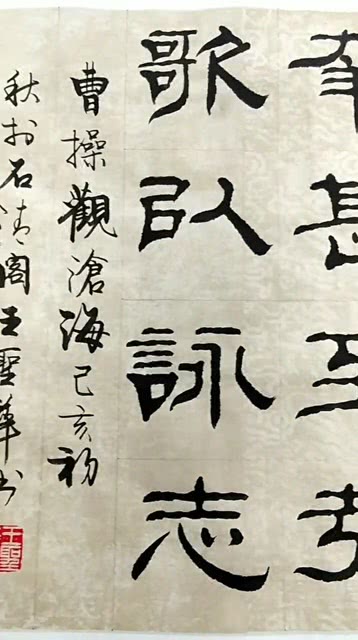 幸甚至哉
歌以詠志
曹操觀滄海己亥初
秋於石青閣王聖華书